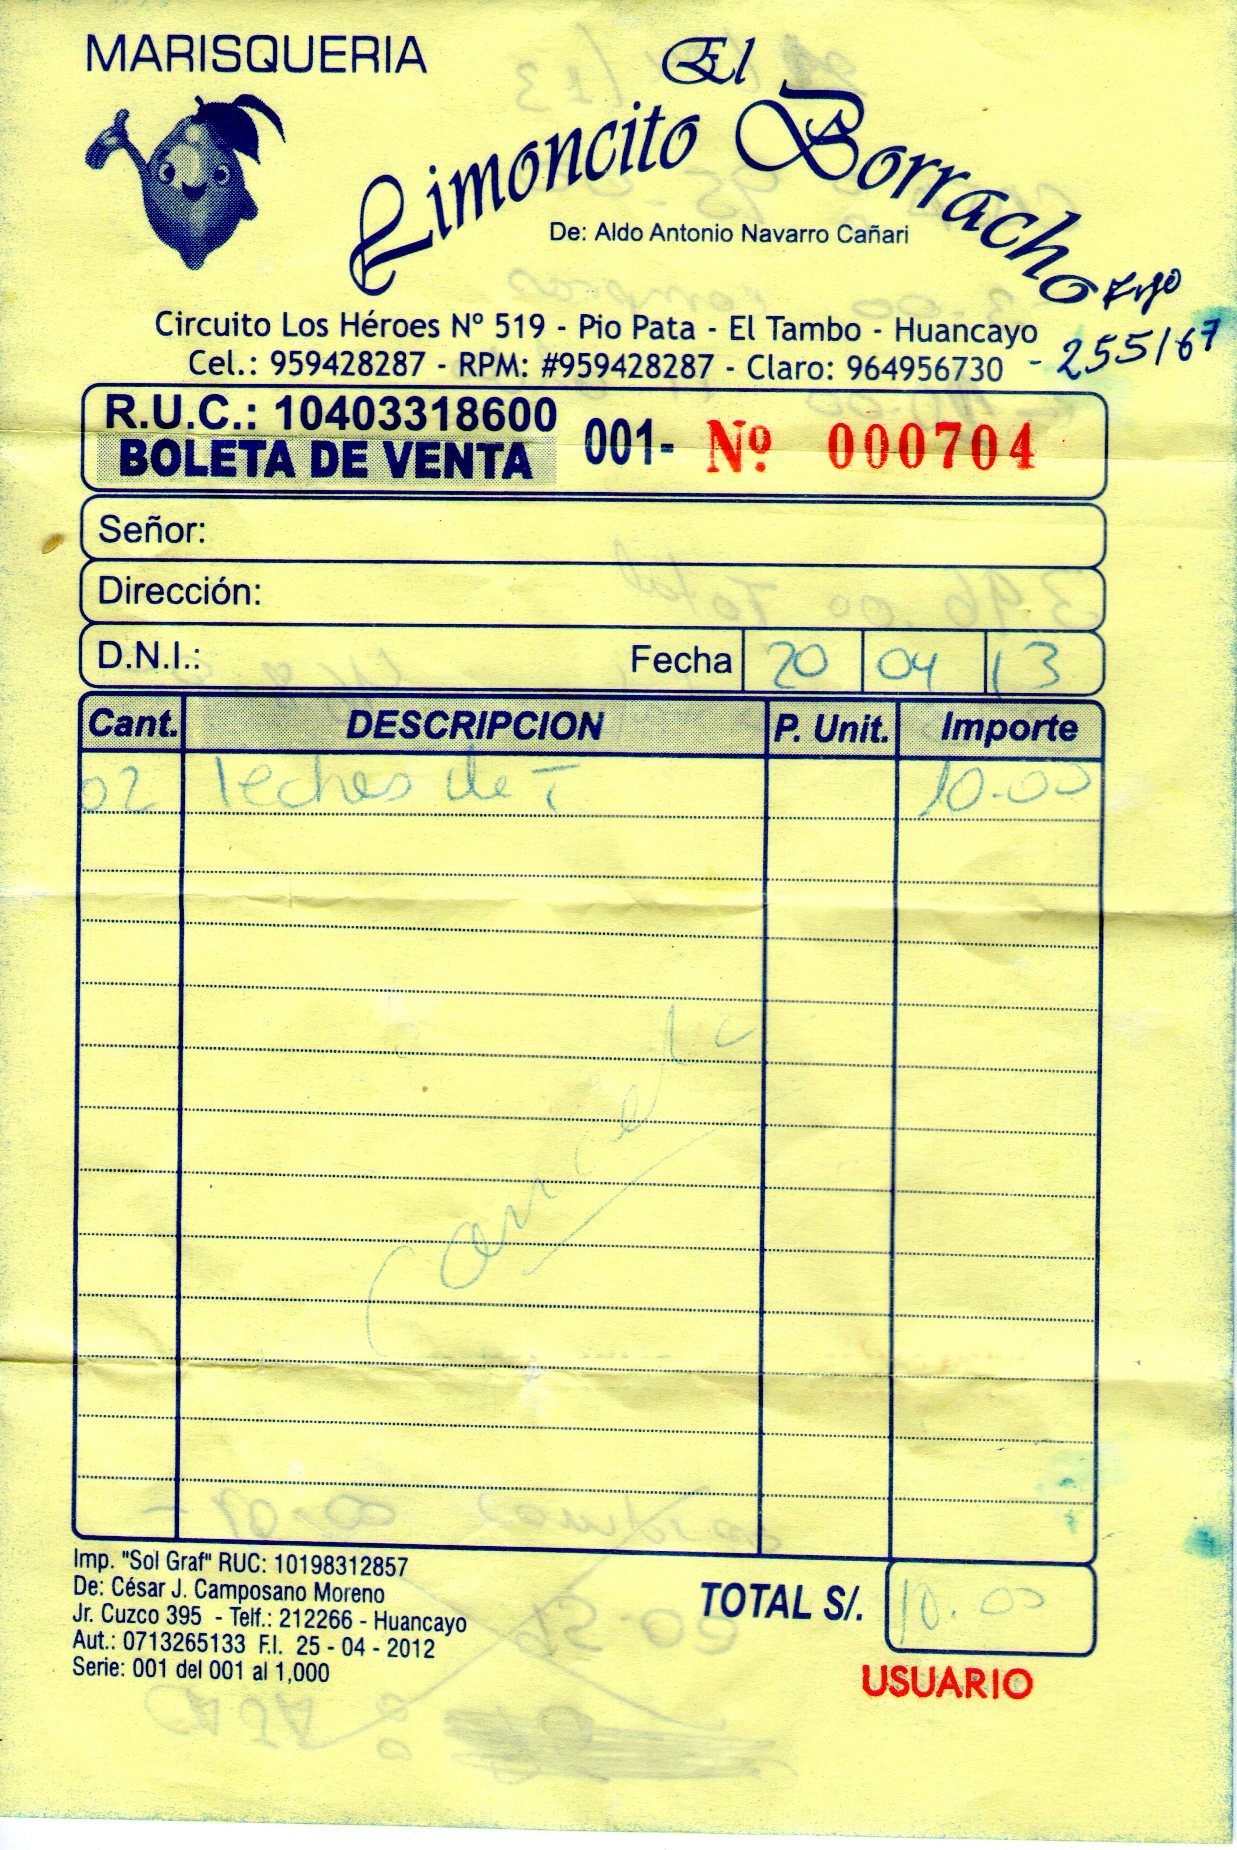 MARISQUERIA
El
Limoncito Borracho
De: Aldo Antonio Navarro Cañari
Circuito Los Héroes Nº 519 - Pio Pata - El Tambo - Huancayo
Cel.: 959428287 - RPM: #959428287 - Claro: 964956730 - 255167
R.U.C.: 10403318600
BOLETA DE VENTA 001- Nº 000704
Señor:
Dirección:
D.N.I.: Fecha 20 04 13
Cant. DESCRIPCION P. Unit. Importe
02 leches de T 10.00
Imp. "Sol Graf" RUC: 10198312857
De: César J. Camposano Moreno
Jr. Cuzco 395 - Telf.: 212266 - Huancayo
Aut.: 0713265133 F.I. 25 - 04 - 2012
Serie: 001 del 001 al 1,000
TOTAL S/. 10.00
USUARIO